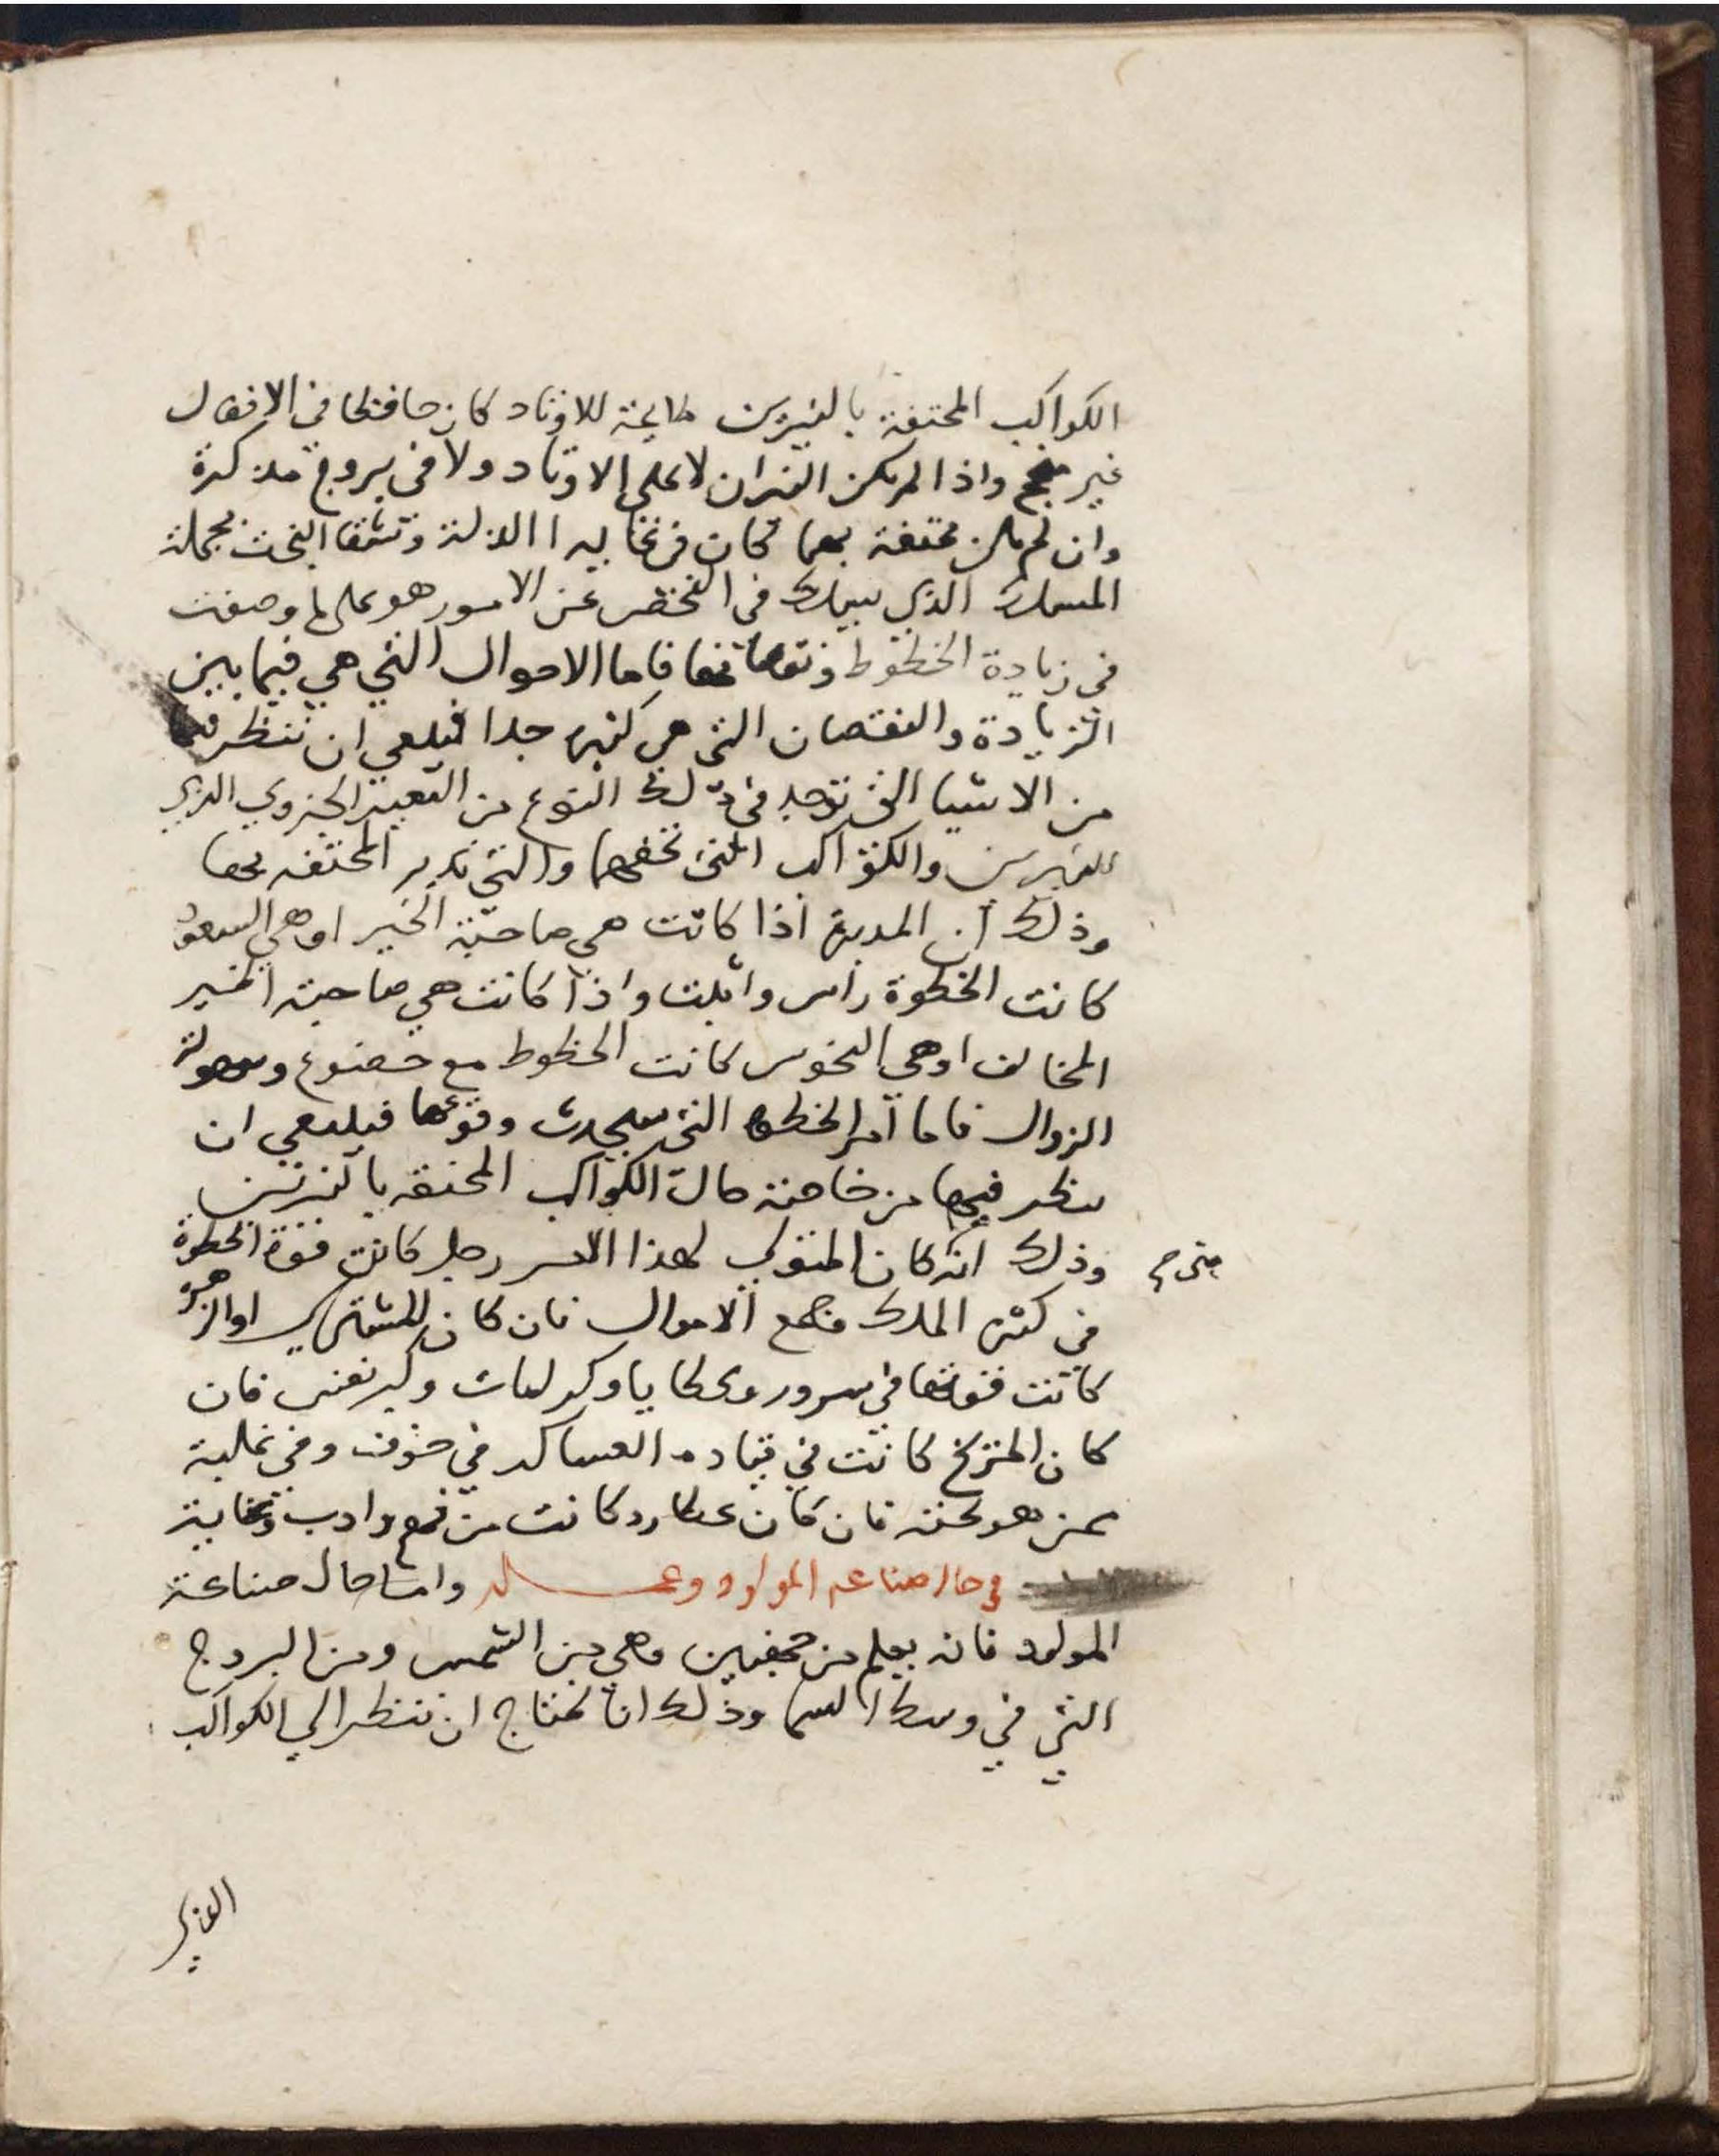 الكواكب المحتفة بالنيرين طالحة للاوتاد كان حافظا في الافعال
غير منجح واذا لم يكن النيران لا على الاوتاد ولا في بروج مذكرة
وان لم تكن محتفة بهما كان في غاية الذلة وشقا البخت بجملة
المسلك الذي يسلك في الفحص عن الامور هو على ما وصفت
في زيادة الحظوظ ونقصانها فاما الاحوال التي هي فيما بين
الزيادة والنقصان التي هي كثيرة جدا فينبغي ان ننظر فيها
من الاشيا التي توجد في ذلك النوع من التغيير الجزوي الذي
للنيرين والكواكب التي تحفهما والتي تدبر المحتفه بهما
وذلك ان المدبرة اذا كانت هي صاحبة الخير او هي السعود
كانت الحظوة راس واثبت واذا كانت هي صاحبة الخير
المخالف او هي النحوس كانت الحظوظ مع خضوع وسهولة
الزوال فاما امر الحظوة التي سيحدث وقوعها فينبغي ان
ينظر فيها من خاصة حال الكواكب المحتفه بالنيرين
وذلك انه كان المتولي لهذا الامر زحل كانت قوة الحظوة
في كثرة الملك وجمع الاموال فان كان للمشتري او الزهرة
كانت قوتها في سرور وعطايا وكرامات وكبر نفس فان
كان المريخ كانت في قيادة العساكر في خوف وفي غلبة
ممن هو تحته فان كان عطارد كانت من فهم وادب وعناية
في حال صناعة المولود وعمله واما حال صناعة
المولود فانه يعلم من جهتين وهي من الشمس ومن البروج
التي في وسط السما وذلك انا نحتاج ان ننظر الي الكواكب
الذي